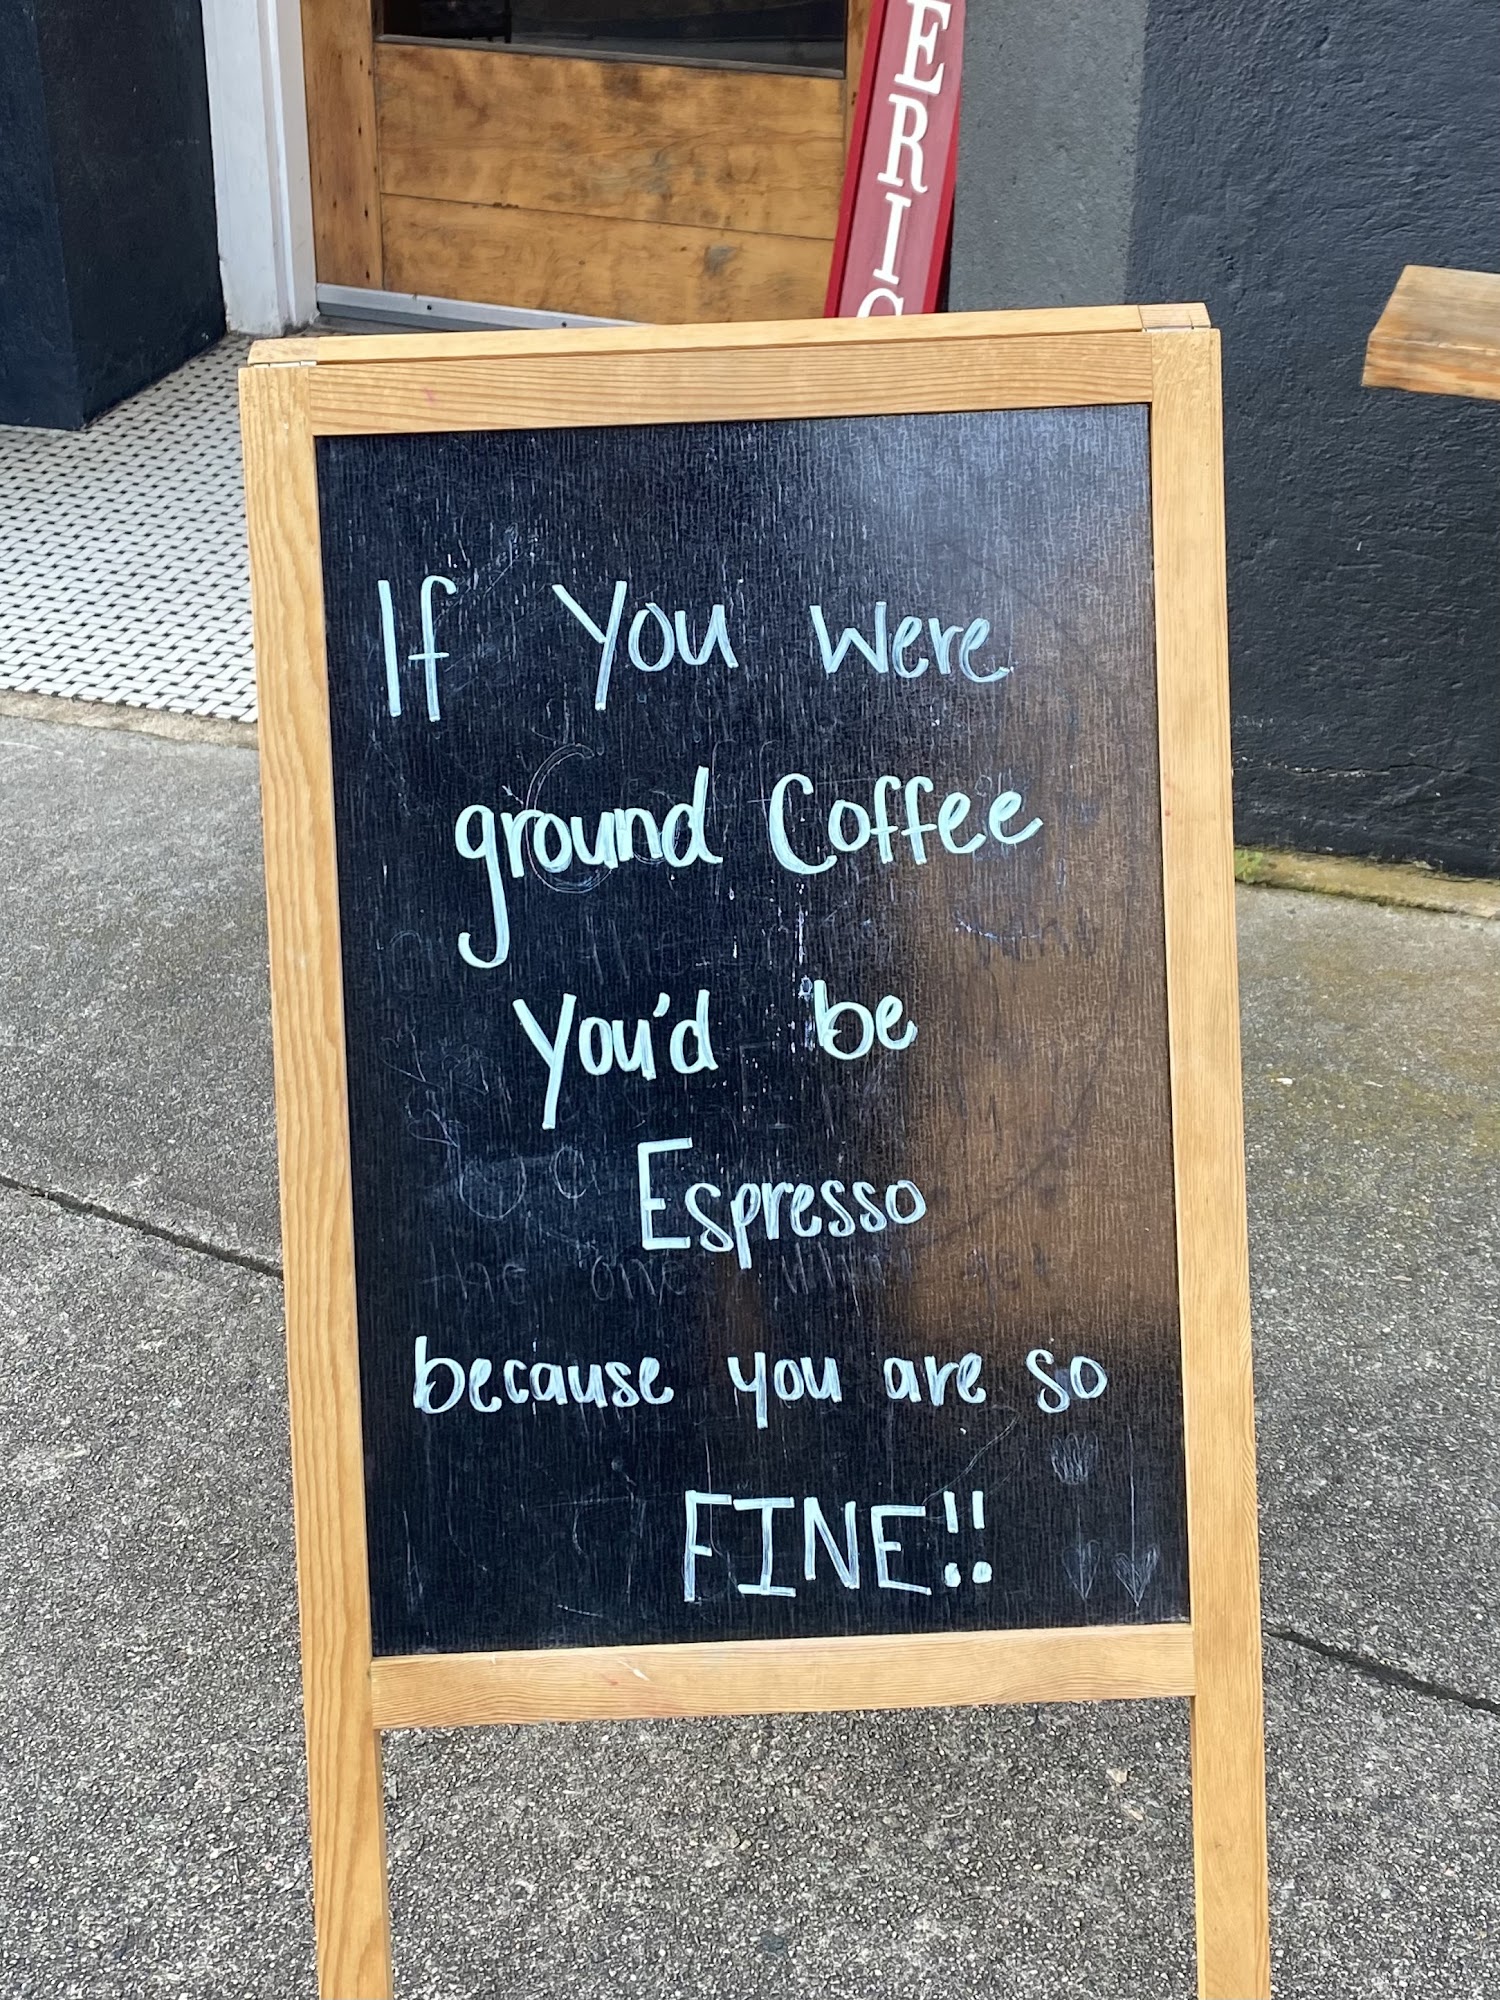 ERIC
If You were
ground Coffee
You'd be
Espresso
because you are so
FINE!!